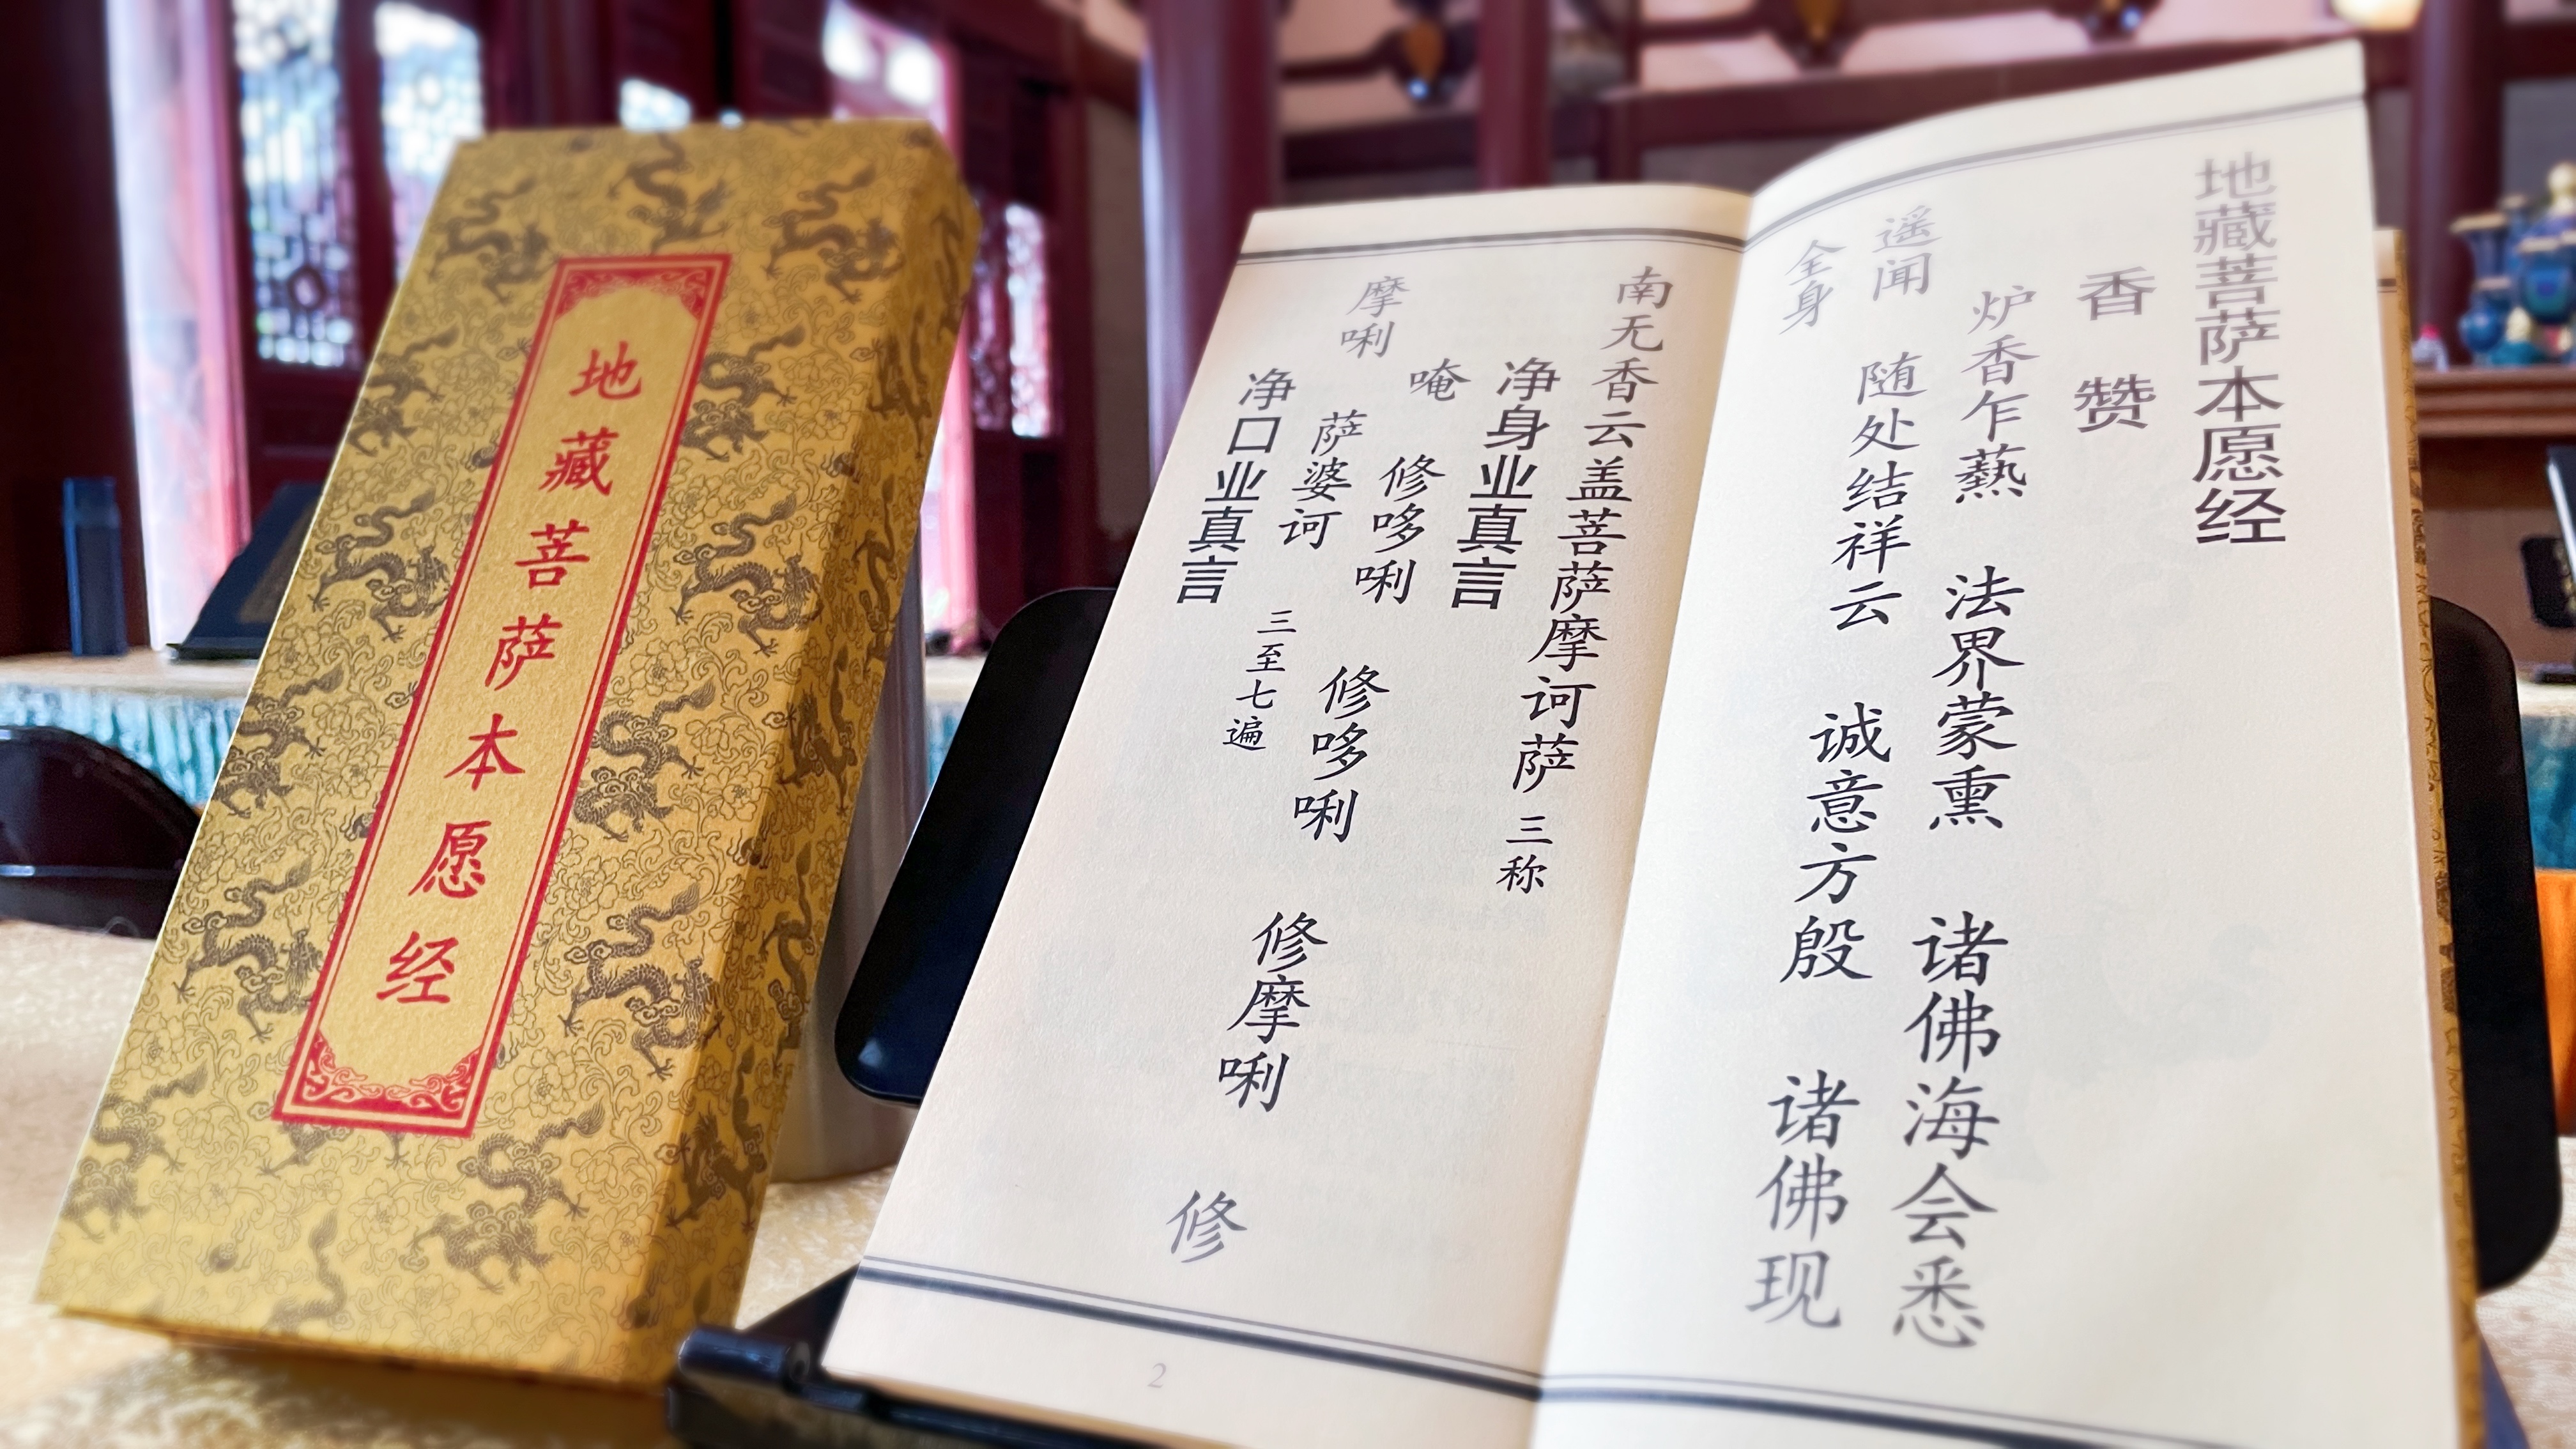 地藏菩萨本愿经
地藏菩萨本愿经
香 赞
炉香乍爇 法界蒙熏 诸佛海会悉
遥闻 随处结祥云 诚意方殷 诸佛现
全身
南无香云盖菩萨摩诃萨 三称
净身业真言
唵 修哆唎 修哆唎 修摩唎 修
摩唎 萨婆诃 三至七遍
净口业真言
2